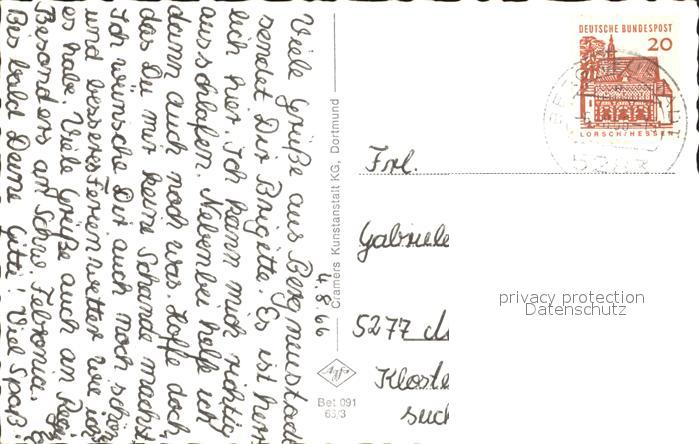 Viele Grüße aus Bergneustadt
sendet Dir Brigitte. Es ist herr-
lich hier. Ich kann mich richtig
ausschlafen. Nebenbei helfe ich
dann auch noch was. Hoffe doch,
das Du mir keine Schande machst
Ich wünsche Dir auch noch schöne
und besseres Ferienwetter wie ich
es habe. Viele Grüße auch an
Besonders an Schw. Febronia.
Bis bald Deine Gitti! Viel Spaß!
4.8.66
Cramers Kunstanstalt KG, Dortmund
Agfa
Bet 091
63/3
DEUTSCHE BUNDESPOST
20
LORSCH/HESSEN
Frl.
Gabriele
5277
Kloste
such
privacy protection
Datenschutz